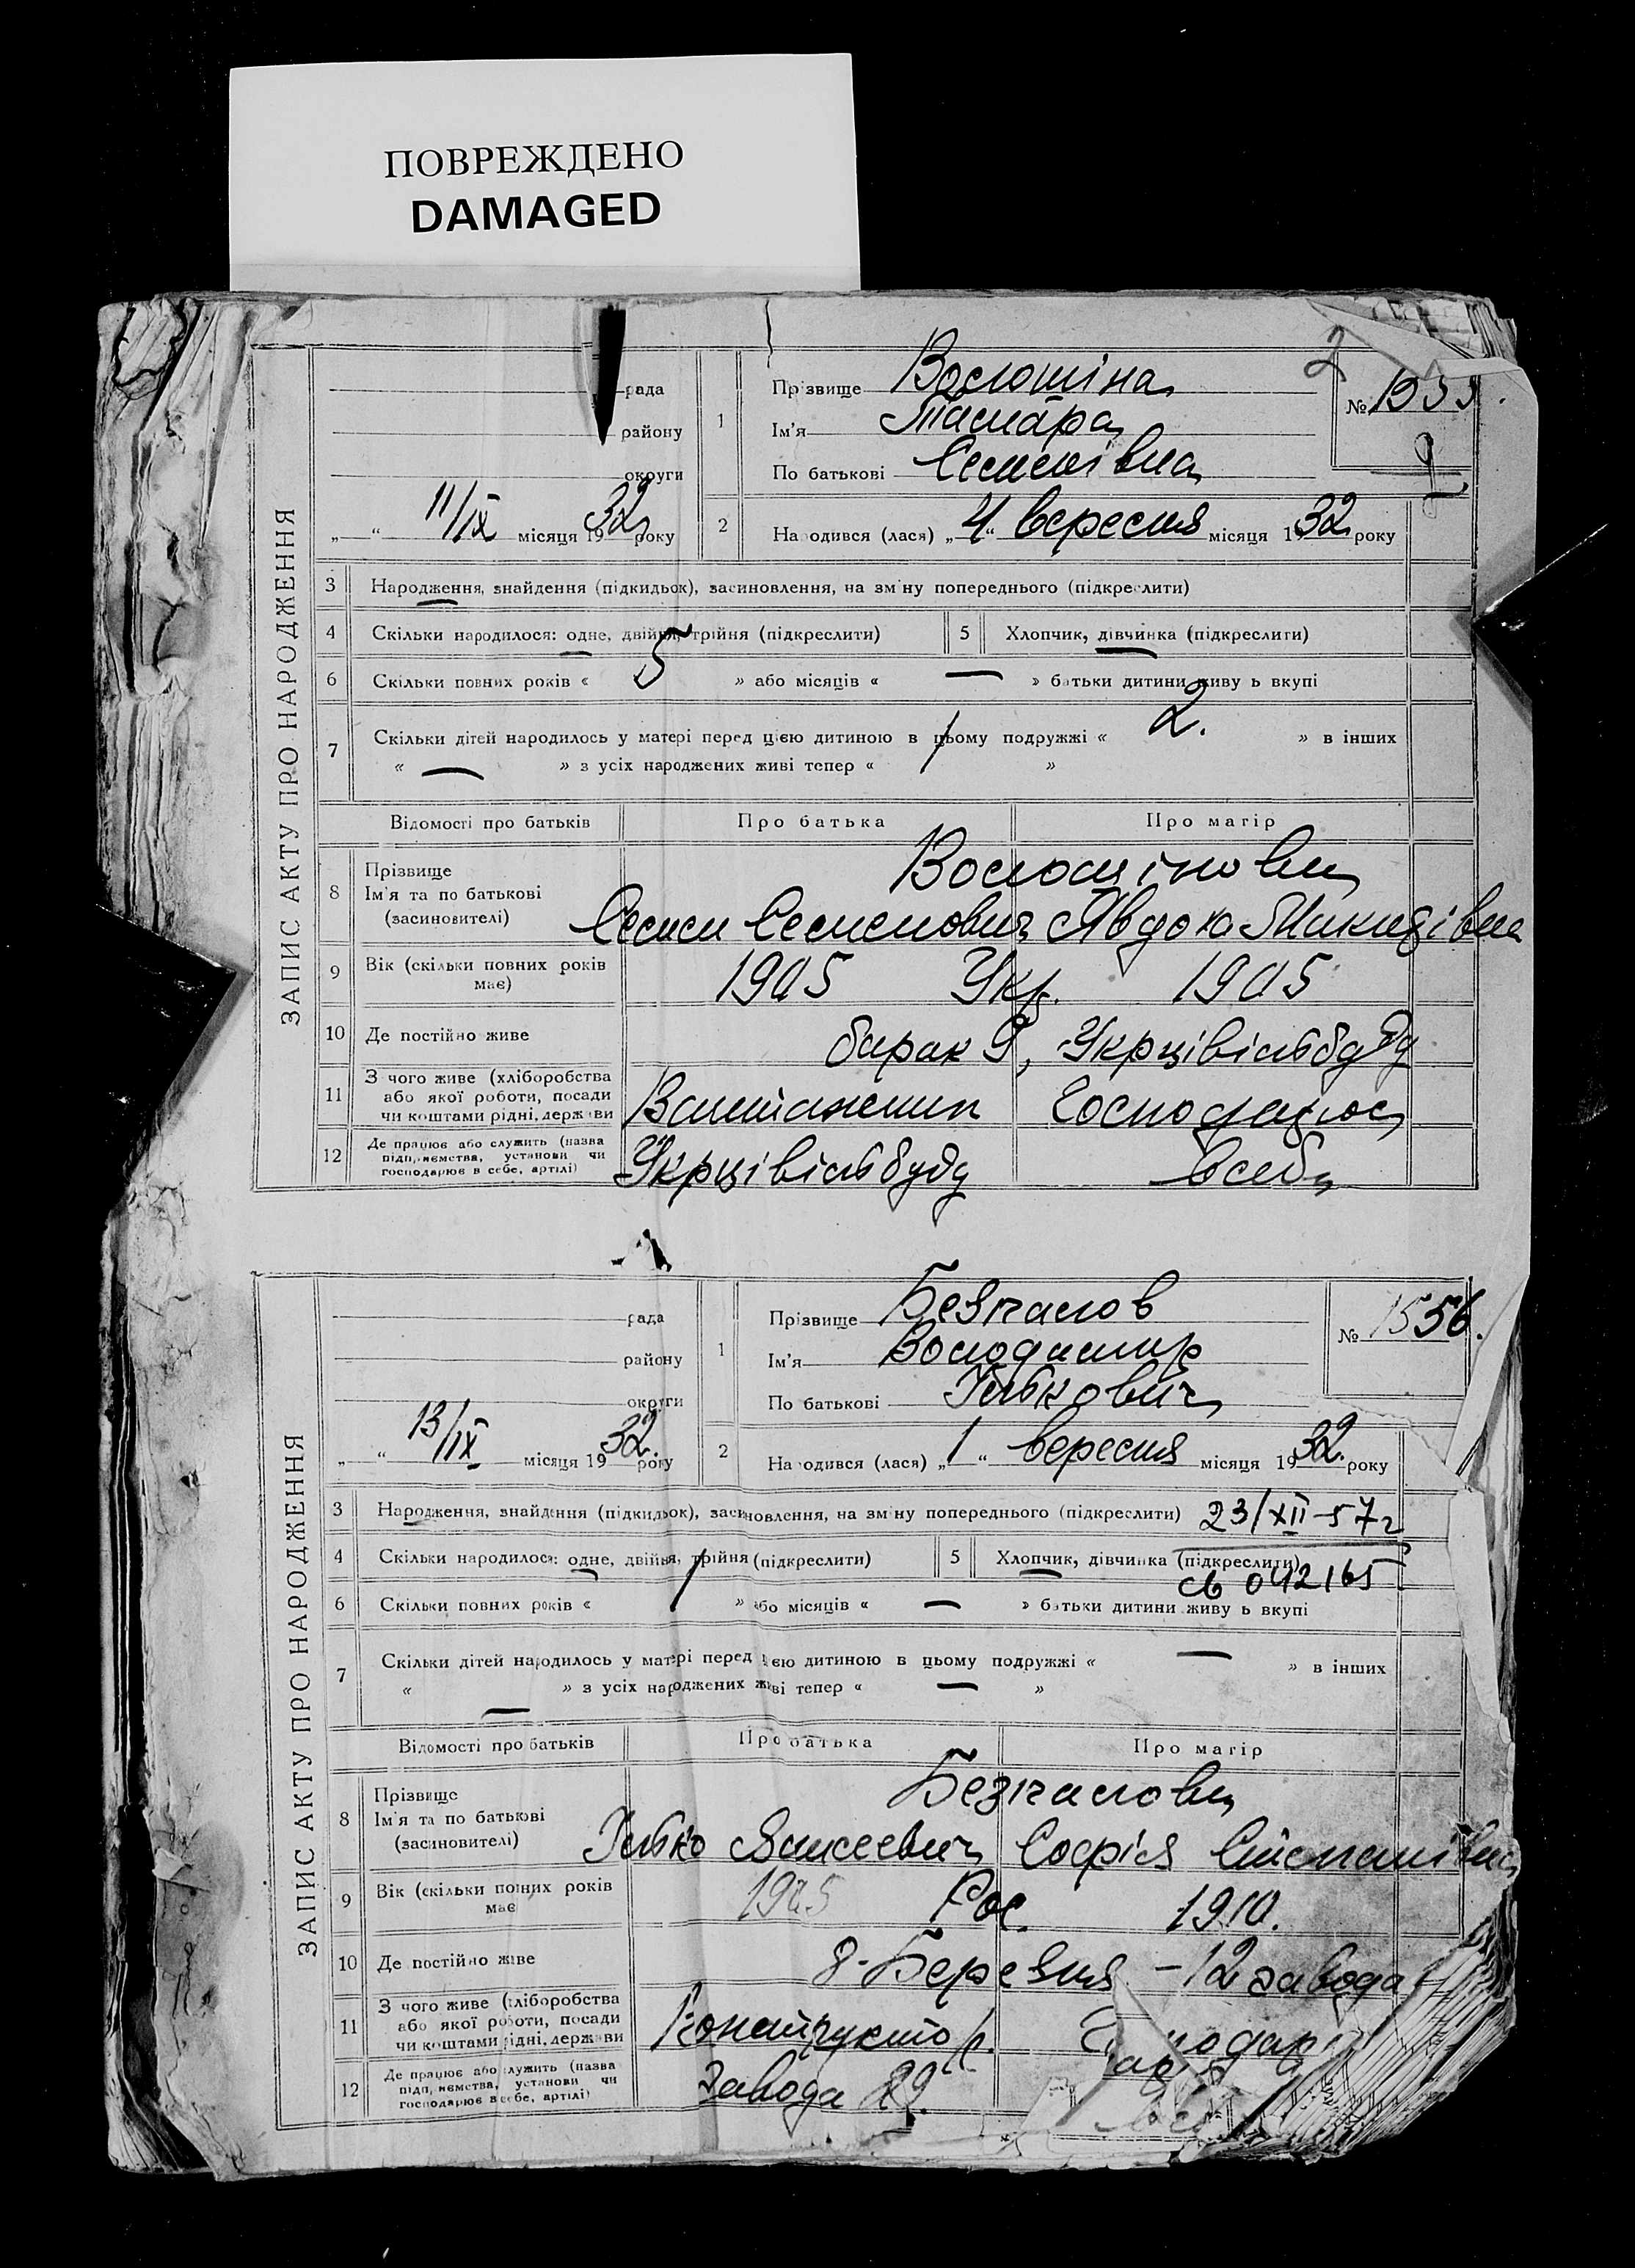 ПОВРЕЖДЕНО
DAMAGED
ЗАПИС АКТУ ПРО НАРОДЖЕННЯ
рада
району
округи
„ “ 11/IX місяця 1932 року
1
Прізвище Волошіна
Ім'я Тамара
По батькові Семенівна
2
№ 1555.
2 Народився (лася) „4“ вересня місяця 1932 року
3 Народження, знайдення (підкидьок), засиновлення, на зміну попереднього (підкреслити)
4 Скільки народилося: одне, двійня, трійня (підкреслити)
5 Хлопчик, дівчинка (підкреслити)
6 Скільки повних років « 5 » або місяців « — » батьки дитини живуть вкупі
7 Скільки дітей народилось у матері перед цією дитиною в цьому подружжі « 2. » в інших
« — » з усіх народжених живі тепер « 1 »
Відомості про батьків Про батька Про матір
8 Прізвище
Ім'я та по батькові
(засиновителі)
Волошінови
Семен Семенович Явдоха Микитівна
9 Вік (скільки повних років має) 1905 Укр. 1905
10 Де постійно живе барак 9, Укрцівільбуду
11 З чого живе (хліборобства
або якої роботи, посади
чи коштами рідні, держави
Вантажник Господарює
12 Де працює або служить (назва
підприємства, установи чи
господарює в себе, артілі)
Укрцівільбуду в себе
ЗАПИС АКТУ ПРО НАРОДЖЕННЯ
рада
району
округи
„ “ 13/IX місяця 1932. року
1
Прізвище Безпалов
Ім'я Володимир
По батькові Юлькович
№ 1556.
2 Народився (лася) „1“ вересня місяця 1932. року
3 Народження, знайдення (підкидьок), засиновлення, на зміну попереднього (підкреслити) 23/XII-57г
4 Скільки народилося: одне, двійня, трійня (підкреслити)
5 Хлопчик, дівчинка (підкреслити)
св 042165
6 Скільки повних років « 1 » або місяців « — » батьки дитини живуть вкупі
7 Скільки дітей народилось у матері перед цією дитиною в цьому подружжі « — » в інших
« — » з усіх народжених живі тепер « — »
Відомості про батьків Про батька Про матір
8 Прізвище
Ім'я та по батькові
(засиновителі)
Безпалови
Софія Степанівна
9 Вік (скільки повних років має) Рос. 1910.
10 Де постійно живе 8-Березня -12 завода
11 З чого живе (хліборобства
або якої роботи, посади
чи коштами рідні, держави
Конструктор.
12 Де працює або служить (назва
підприємства, установи чи
господарює в себе, артілі)
завода 29.